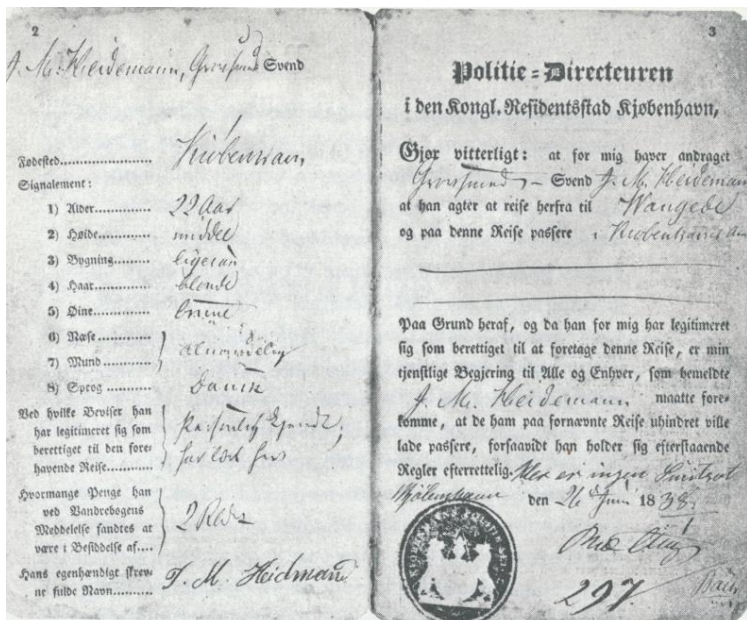 2
J. M. Heidemann, Grovsmed Svend
Fødested............ Kiøbenhavn
Signalement:
1) Alder............ 22 Aar
2) Høide............ middel
3) Bygning............
4) Haar............ blonde
5) Øine............ brune
6) Næse............
7) Mund............ almindelig
8) Sprog............ Dansk
Ved hvilke Beviser han
har legitimeret sig som
berettiget til den fore-
havende Reise............
Hvormange Penge han
ved Vandrebogens
Meddelelse fandtes at
være i Besiddelse af.... 2 Rbd
Hans egenhændigt skrev-
ne fulde Navn............ J. M. Heidmann
3
Politie=Directeuren
i den Kongl. Residentsstad Kjøbenhavn,
Gjør vitterligt: at for mig haver andraget
Grovsmed - Svend J. M. Heidemann
at han agter at reise herfra til
og paa denne Reise passere
Paa Grund heraf, og da han for mig har legitimeret
sig som berettiget til at foretage denne Reise, er min
tjenstlige Begjering til Alle og Enhver, som bemeldte
J. M. Heidemann maatte fore-
komme, at de ham paa fornævnte Reise uhindret ville
lade passere, forsaavidt han holder sig efterstaaende
Regler efterrettelig. Her er ingen Smitsot
Kjøbenhavn den 26 Juni 1838.
297.